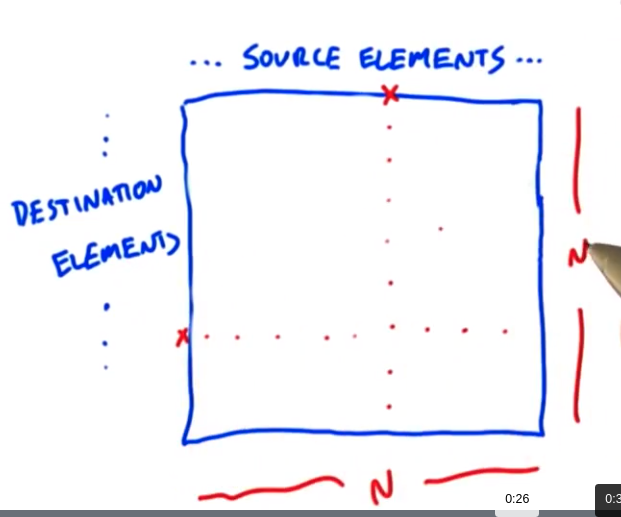 ... SOURCE ELEMENTS ...
DESTINATION
ELEMENTS
N
N
0:26
0:3